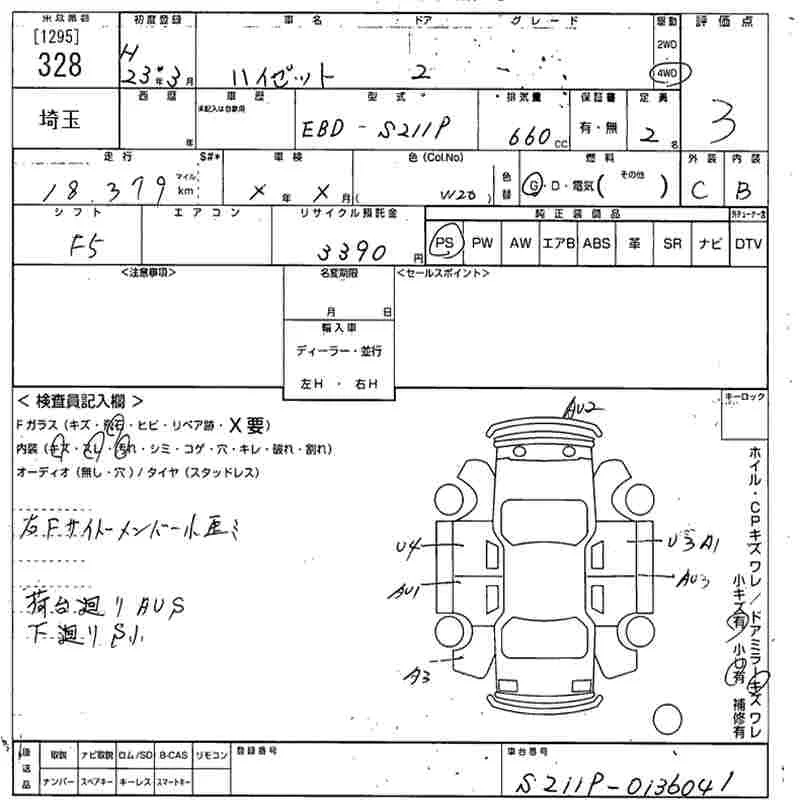 [1295]
328
初度登録
H
23年3月
車名
ハイゼット
ドア
2
グレード
駆動
2WD
4WD
評価点
3
埼玉
西暦
年
車歴
未記入は自家用
型式
EBD-S211P
排気量
660cc
保証書
有・無
定員
2名
走行
18.379
マイル
km
S#*
車検
X年X月
色(Col.No)
( W20 )
色替
燃料
G・D・電気(その他 )
外装
C
内装
B
シフト
F5
エアコン
リサイクル預託金
3390円
純正装備品
PS PW AW エアB ABS 革 SR ナビ DTV
<注意事項>
名変期限
月 日
輸入車
ディーラー・並行
左H ・ 右H
<セールスポイント>
< 検査員記入欄 >
Fガラス(キズ・飛石・ヒビ・リペア跡・X要)
内装(キズ・スレ・汚れ・シミ・コゲ・穴・キレ・破れ・割れ)
オーディオ(無し・穴)/タイヤ(スタッドレス)
右Fサイドメンバー小歪ミ
荷台廻りAUS
下廻りS小
AU2
U4
AU1
A3
U3 A1
AU3
キーロック
ホイル・CPキズワレ/ドアミラーキズワレ
小キズ有 小凹有 補修有
後送品
取説 ナビ取説 ロム/SD B-CAS リモコン
ナンバー スペアキー キーレス スマートキー
登録番号
車台番号
S211P-0136041